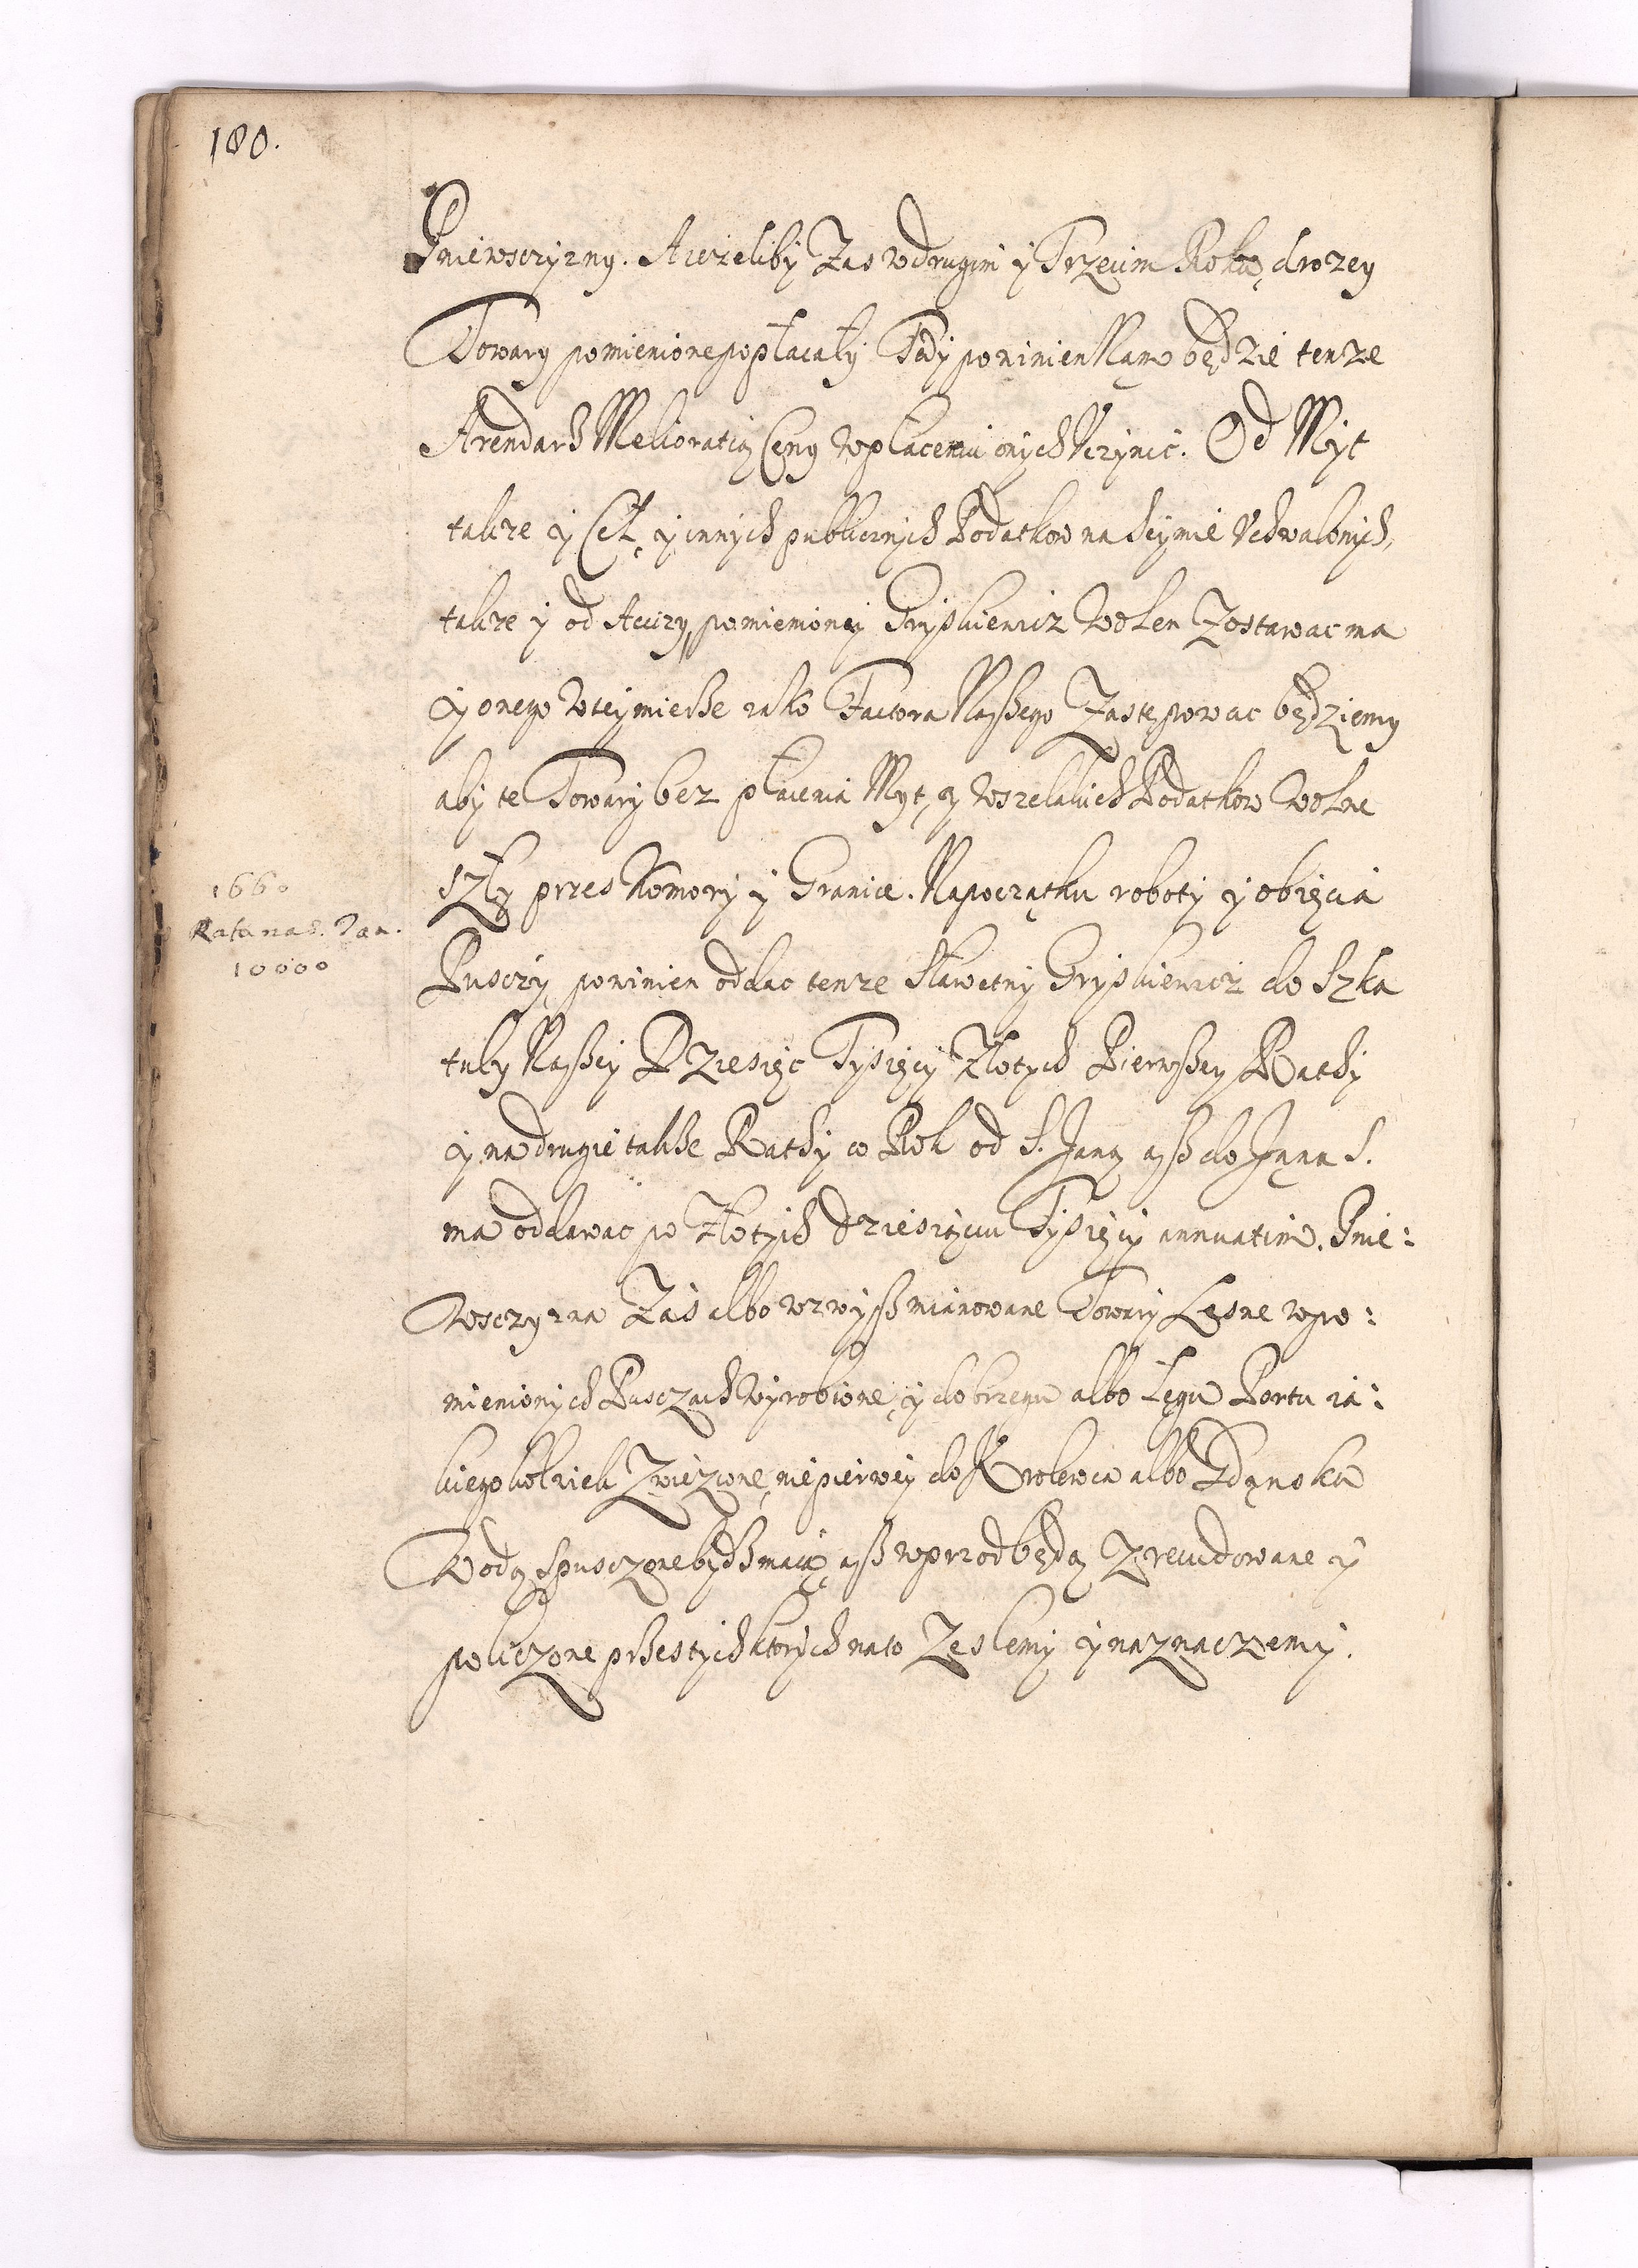 180.
Pniewsczyzny. A ieżeliby Zas w drugim y Trzecim Roku, drozey
Towary pomienione popłacały Tedy powinien Nąm będzie tenze
Arendarz Melioratią Ceny w płaceniu onych Uczynić. Od Myt
takze y Ceł, y innych publicznych Podatkow na Seymie Uchwalonych,
takze y od Accizy pomienioney Gryszkiewicz Wolen Zostawac ma
y onego w tey mierże iako Factora Naszego Zastępowac będziemy
aby te Towary bez płacenia Myt, y wszelakich Podatkow Wolne
szły przes Komory y Granice. Na początku roboty y obięcia
Pusczy powinien oddac tenze Sławetny Gryszkiewicz do Szka
tuły Naszey Dziesięc Tysięcy Złotych Pierwszey Rathy
y na drugie także Rathy co Rok od S. Jana asz do Jąna S.
ma oddawac po Złotych dziesięciu Tysięcy annuatim. Pnie:
wsczyzna Zaś albo wzwysz mianowane Towary Leśne w po:
mienionych Pusczach wyrobione, y do brzegu albo Łęgu Portu ia:
kiegokolwiek Zwiezione, nie pierwey do Krolewca albo Gdąnska
Wodą Spusczone bydź maią, asz w przod będą Zrewidowane y
policzone przes tych ktorych na to Zeslemy y naznaczemy.
1660
Rata na S. Jan.
10000